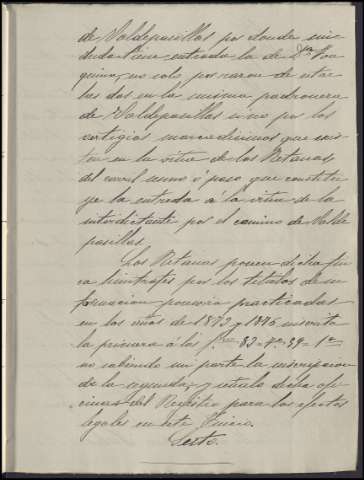 de Valdepasillas por donde sin
duda tiene entrada la de Dn. Joa
quin, no solo por razon de estar
las dos en la misma padronera
de Valdepasillas sino por los
vestigios marcadisimos que exis
ten en la viña de los Retanas
del carril senda ó paso que constitu
ye la entrada á la viña de la
interdictante por el camino de Valde
pasillas.
Los Retanas poseen dicha fin
ca limitrofe por los titulos de in
formacion posesoria practicadas
en los años de 1873 y 1896 inscrita
la primera á los 83 39 1ª
no sabiendo mi parte la inscripcion
de la segunda, y señala dicha ofi
cina del Registro para los efectos
legales en este Juicio.
Sesto.